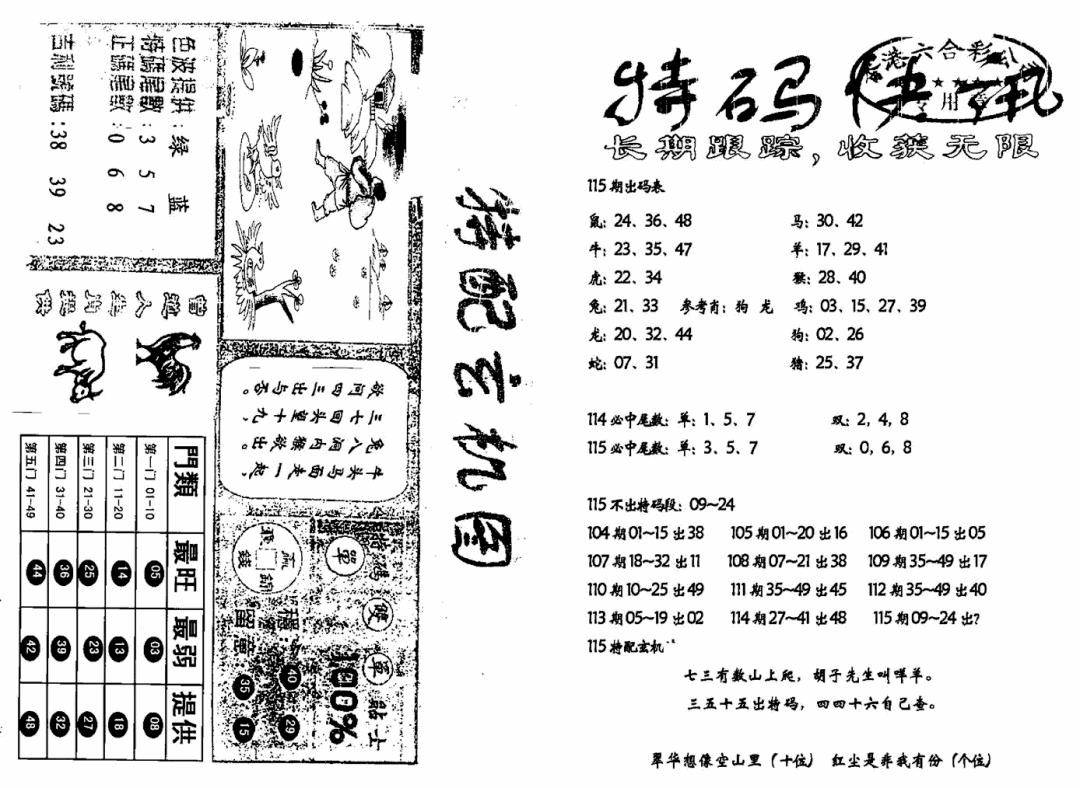 特配玄机图
色波提供：绿 蓝
特碼尾數：3 5 7
正碼尾數：0 6 8
吉利號碼：38 39 23
曾道人
牛头马面走一起，
三七回头望十九，
門類 最旺 最弱 提供
第一门 01-10 05 03 08
第二门 11-20 14 13 18
第三门 21-30 25 23 27
第四门 31-40 36 39 32
第五门 41-49 44 42 48
特碼單雙單貼士
100%
留意：
40 29
35 15
特码快讯
香港六合彩公司
专用章
长期跟踪，收获无限
115期出码表
鼠：24、36、48 马：30、42
牛：23、35、47 羊：17、29、41
虎：22、34 猴：28、40
兔：21、33 参考肖：狗 龙 鸡：03、15、27、39
龙：20、32、44 狗：02、26
蛇：07、31 猪：25、37
114必中尾数：单：1、5、7 双：2、4、8
115必中尾数：单：3、5、7 双：0、6、8
115不出特码段：09～24
104期01～15出38 105期01～20出16 106期01～15出05
107期18～32出11 108期07～21出38 109期35～49出17
110期10～25出49 111期35～49出45 112期35～49出40
113期05～19出02 114期27～41出48 115期09～24出?
115特配玄机
七三有数山上爬，胡子先生叫咩羊。
三五十五出特码，四四十六自己查。
翠华想像空山里（十位） 红尘是非我有份（个位）